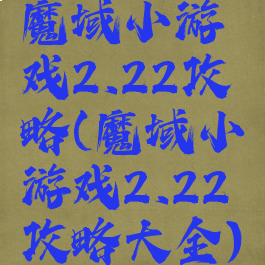 魔域小游
戏2.22攻
略(魔域小
游戏2.22
攻略大全)